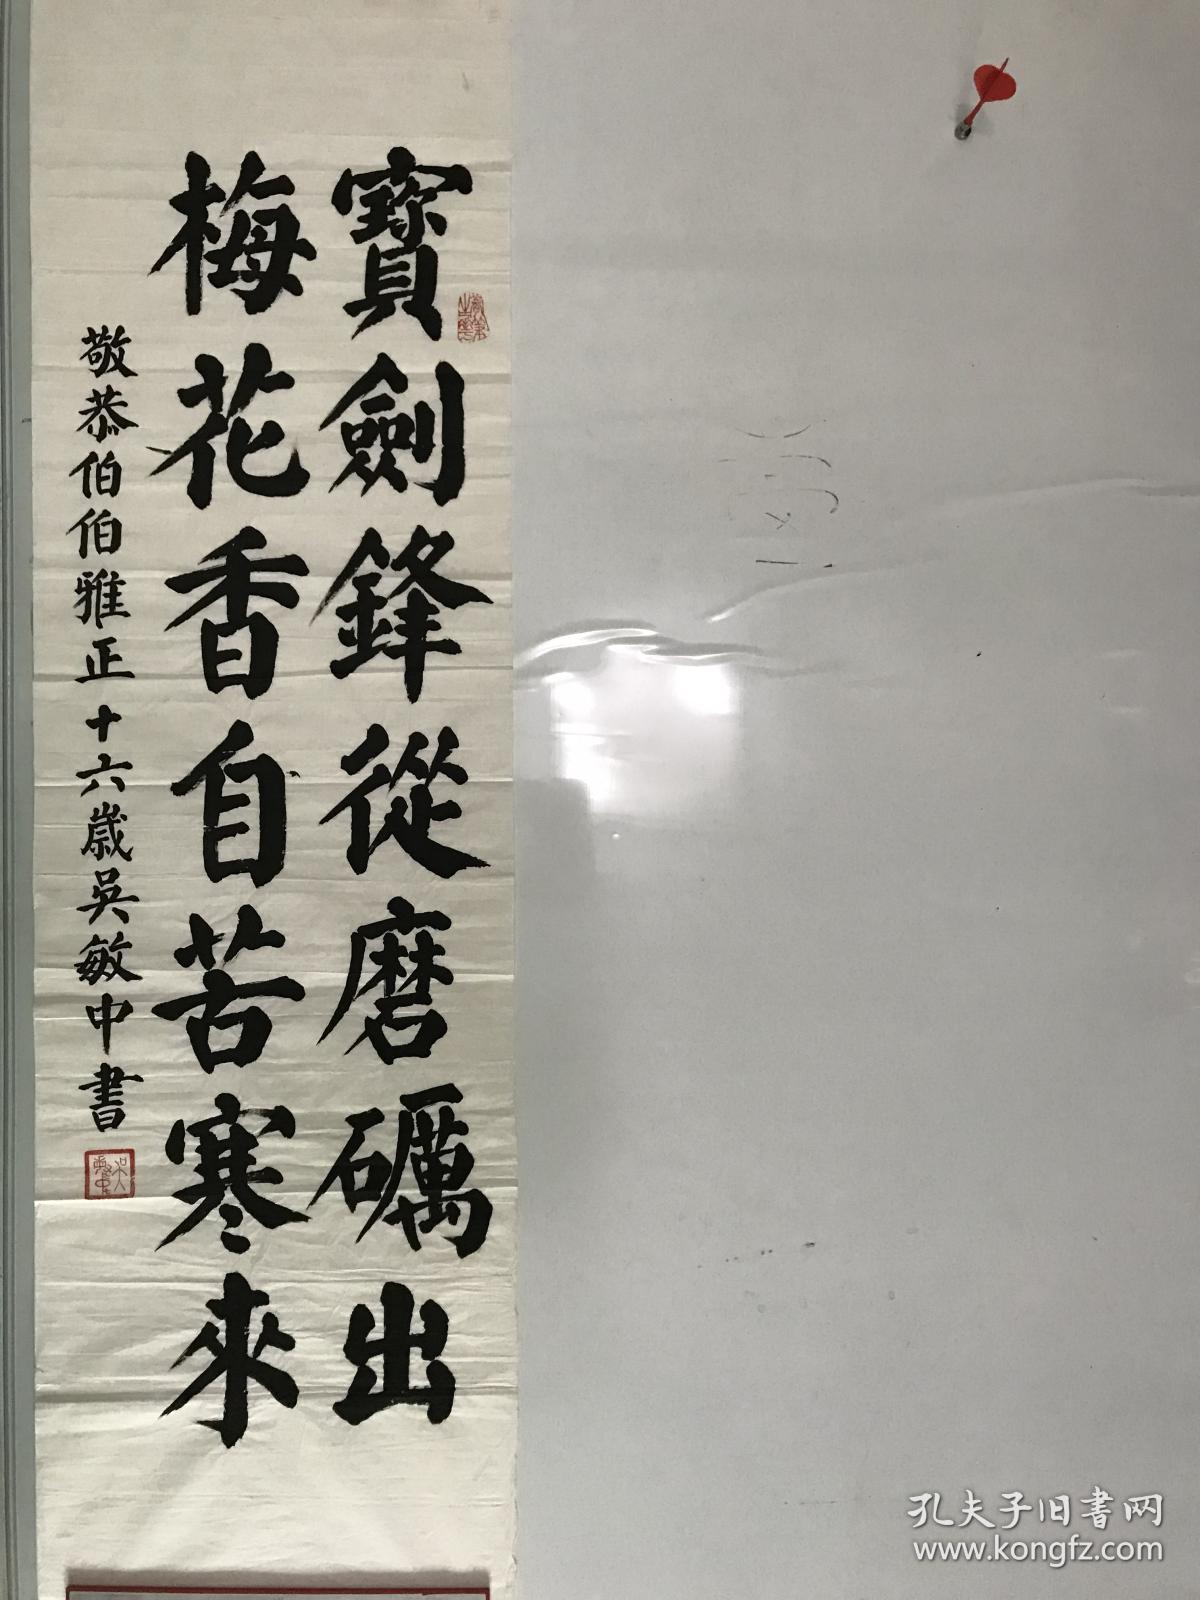 寶劍鋒從磨礪出
梅花香自苦寒來
敬恭伯伯雅正十六歲吳敏中書
孔夫子旧書网
www.kongfz.com